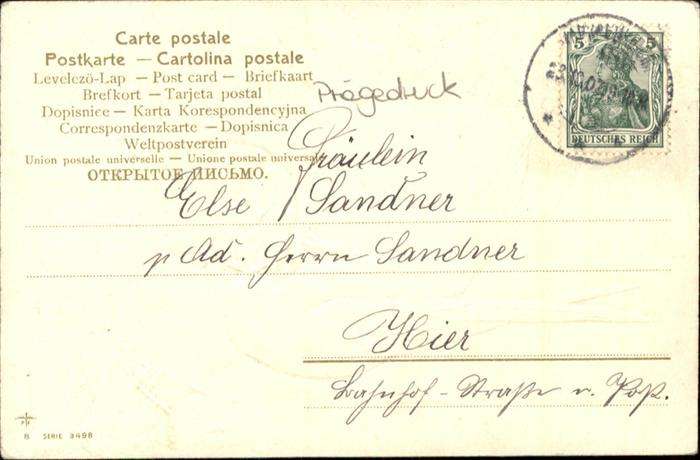 Carte postale
Postkarte — Cartolina postale
Levelezö-Lap — Post card — Briefkaart
Brefkort — Tarjeta postal
Dopisnice — Karta Korespondencyjna
Correspondenzkarte — Dopisnica
Weltpostverein
Union postale universelle — Unione postale universale
ОТКРЫТОЕ ПИСЬМО.
Prägedruck
5 5
DEUTSCHES REICH
Fräulein
Else Sandner
p Ad. Herrn Sandner
Hier
Bahnhof-Straße
8 SERIE 3498